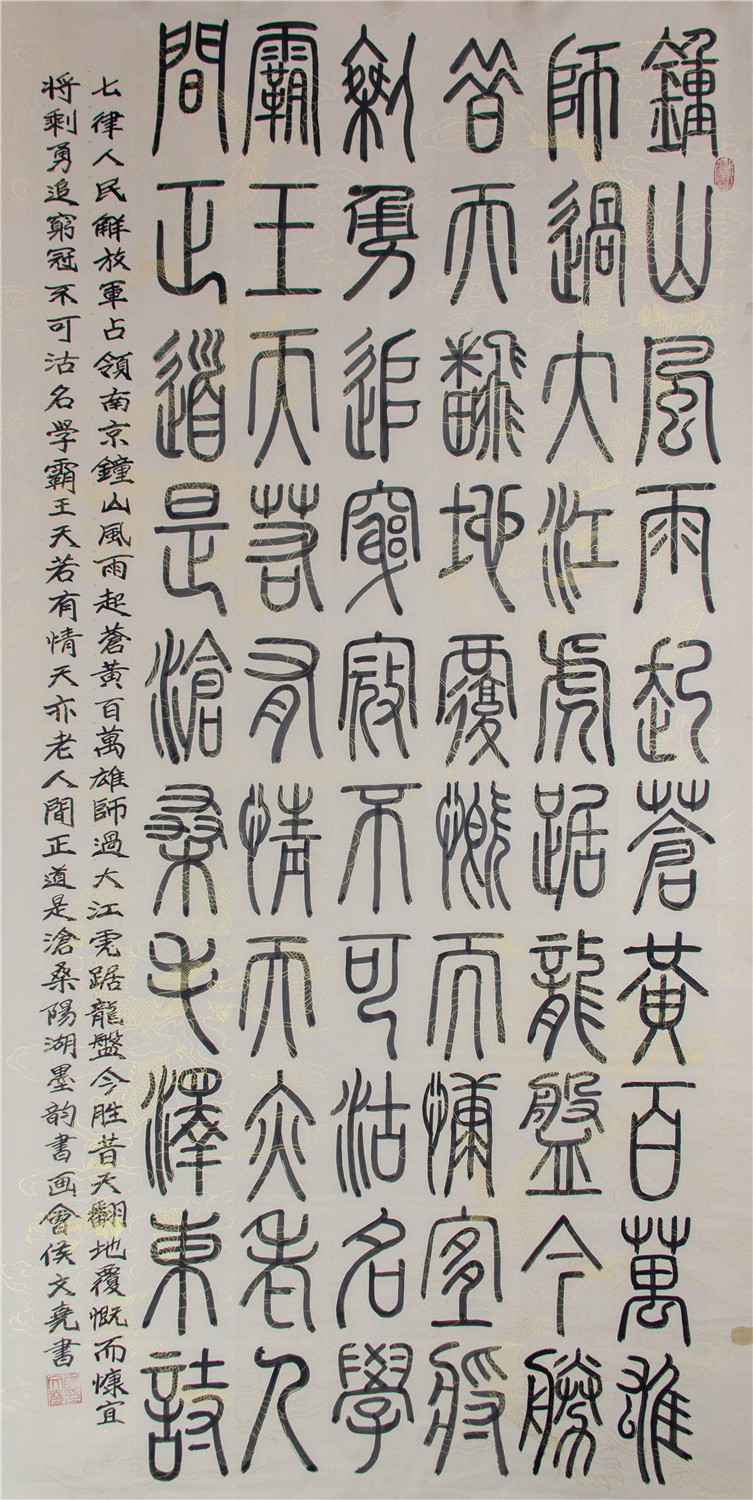 鐘山風雨起蒼黃百萬雄
師過大江虎踞龍盤今勝
昔天翻地覆慨而慷宜將
剩勇追窮寇不可沽名學
霸王天若有情天亦老人
間正道是滄桑毛澤東詩
七律人民解放軍占領南京鐘山風雨起蒼黃百萬雄師過大江虎踞龍盤今胜昔天翻地覆慨而慷宜
将剩勇追窮冠不可沽名学霸王天若有情天亦老人間正道是滄桑陽湖墨韵書画會侯文堯書